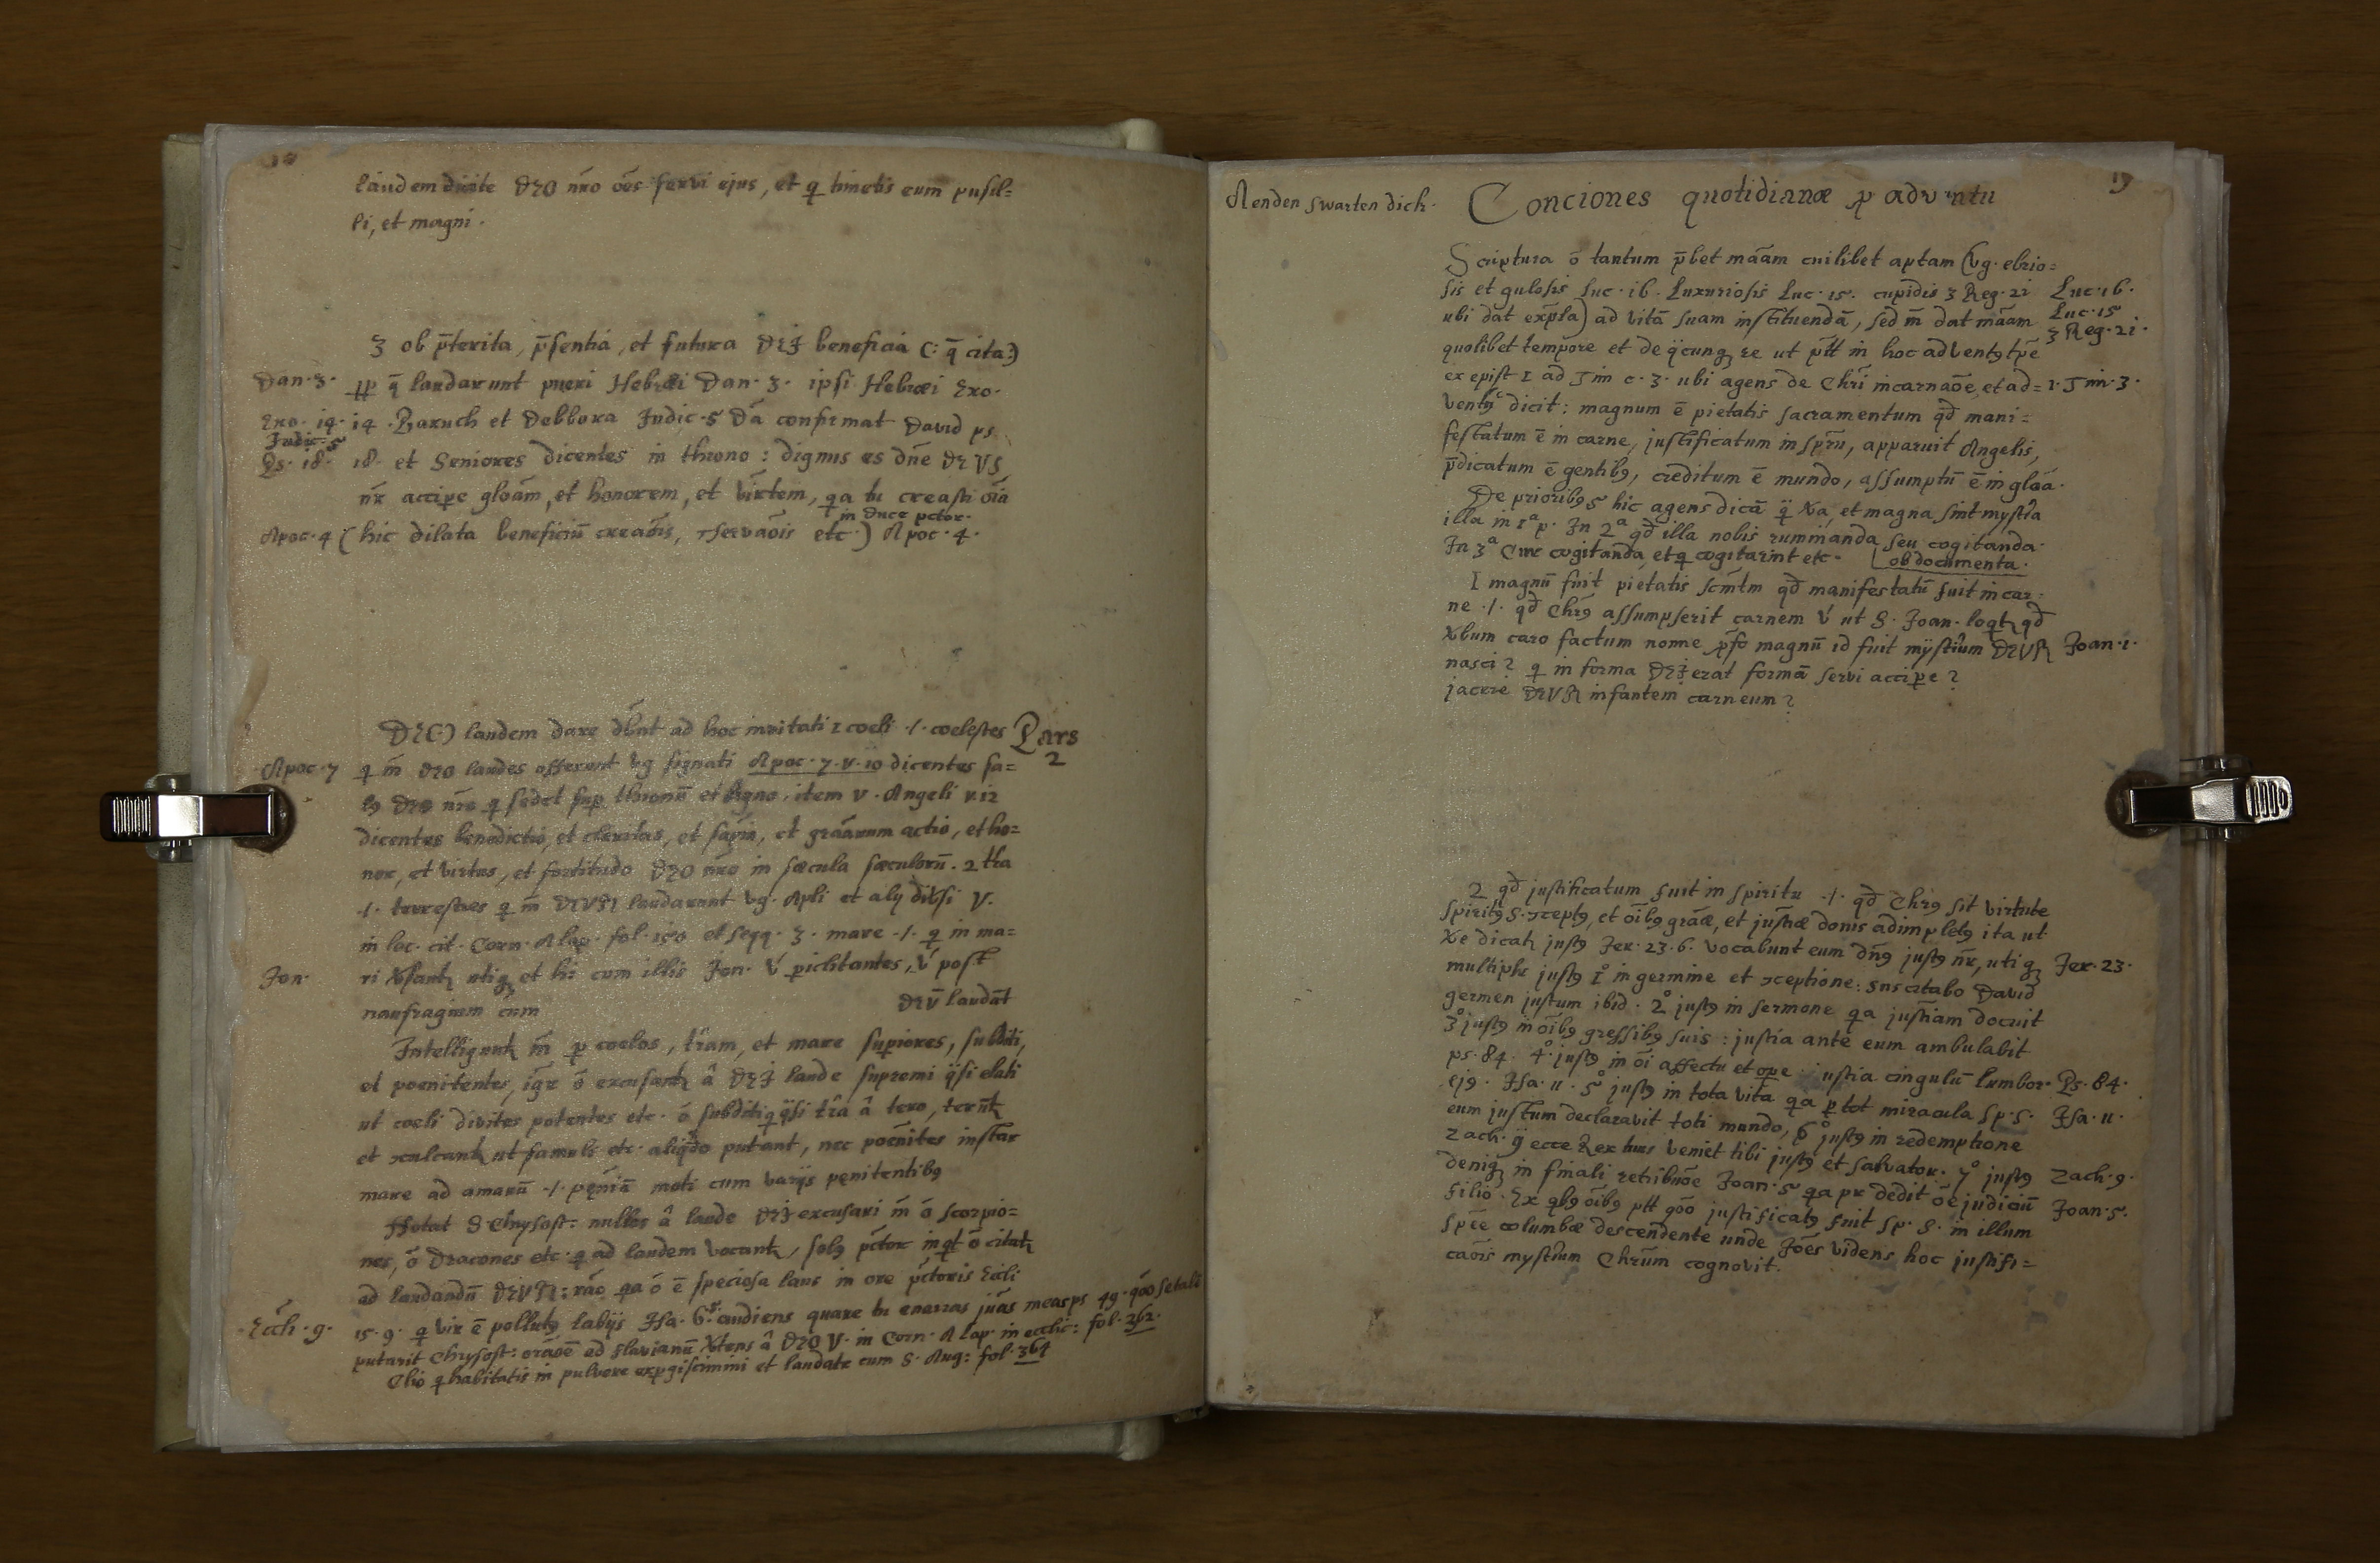 18
laudem dicite DEO n̄ro ōēs servi ejus, et q timetis eum pusil=
li, et magni.
3 ob p̄terita, p̄sentia, et futura DEI beneficia (: q̄ cita:)
Dan. 3. q̄ laudarunt pueri Hebræi Dan. 3. ipsi Hebræi Exo.
Exo. 14. 14. Baruch et Debbora Judic. 5 confirmat David ps.
Judic. 5
Ps. 18. 18. et Seniores dicentes in throno: dignus es dn̄e DEUS
n̄r accipe gloām, et honorem, et virtem, qa tu creasti oīa
in duce pctor.
Apoc. 4 (hic dilata beneficiū creaōis, servaōis etc.) Apoc. 4.
DEO laudem dare dbnt ad hoc invitati 1 coeli ./. coelestes Pars
2
Apoc. 7 q m̄ DEO laudes offerunt vg signati Apoc. 7. v. 10 dicentes sa=
l9 DEO nr̄o q sedet sup thronū et agno. item v. Angeli v. 12
dicentes benedictio, et claritas, et sapīa, et graārum actio, et ho=
nor, et virtus, et fortitudo DEO nr̄o in sæcula sæculorū. 2 tr̄a
./. terrestres q m̄ DEUM laudarunt vg. Apli et alÿ divsi V.
in loc. cit. Corn. A lap. fol. 150 et seqq. 3. mare ./. q in ma=
Jon. ri utiq et hi cum illis Jon. v̄ piclitantes, v̄ post
naufragium cum DEV̄ laudāt
Intelligunt m̄ p coelos, tr̄am, et mare supiores, subditi,
et poenitentes, ō excusant â DEI laude supremi q̈si elati
ut coeli divites potentes etc. ō subditi q̈si tr̄a â
et ut famuli etc. putant, nec poēnites instar
mare ad amarū ./. pęniā moti cum varijs penitentib9
Notat S Chrysost: nullos â laude DEI excusari m̄ ō scorpio=
nes, ō Dracones etc. q ad laudem vocant, sol9 pctor ō citat
ad laudandū DEUM: rāo qa ō ē speciosa laus in ore pctoris Ecli
Eccli. 9. 15. 9. q vir ē pollut9 labijs Isa. 6. audiens quare tu enarras meas ps 49.
putarit Chrysost: oraōe ad flavianū â DEO V. in Corn. A lap. in ecclic: fol. 362.
q habitatis in pulvere expgiscimini et laudate cum S. Aug: fol. 364
19
Aenden swarten dich. Conciones quotidianæ p adventu
Scriptura ō tantum p̄bet māam cuilibet aptam (vg. ebrio=
sis et gulosis Luc. 16. Luxuriosis Luc. 15. cupidis 3 Reg. 21 Luc. 16.
ubi dat exp̄la) ad vitā suam instituendā, sed m̄ dat māam Luc. 15
3 Reg. 21.
quolibet tempore et de q̈cunq re ut ptt in hoc advent9 tp̄e
ex epist 1 ad Tim c. 3. ubi agens de Chri incarnaōe, et ad= 1. Tim. 3.
vent9 dicit: magnum ē pietatis sacramentum qd̄ mani=
festatum ē in carne, justificatum in sp̄ru, apparuit Angelis,
p̄dicatum ē gentib9, creditum ē mundo, assumptū ē in gloā.
De priorib9 5 hic agens dicā q̈ Xa, et magna sint mystīa
illa in 1ᵃ p. In 2ᵃ qd̄ illa nobis rummanda seu cogitanda.
In 3ᵃ Cur cogitanda, et q cogitarint etc. ob documenta.
1 magnū fuit pietatis scm̄tm qd̄ manifestatū fuit in car=
ne ./. qd̄ Chr9 assumpserit carnem v̄ ut S. Joan. loqt qd̄
Xbum caro factum nonne pfo magnū id fuit mÿstīum DEUM Joan. 1.
nasci? q in forma DEI erat formā servi accipe?
jacere DEUM infantem carneum?
2 qd̄ justificatum fuit in spiritu ./. qd̄ Chr9 sit virtute
spirit9 S. ɔcept9, et oīb9 graæ, et justiæ donis adimplet9 ita ut
Xe dicat just9 Jer. 23. 6. vocabunt eum dn̄9 just9 n̄r, utiq Jer. 23.
multiplr just9 1° in germine et ɔceptione: suscitabo David
germen justum ibid. 2° just9 in sermone qa justiam docuit
3° just9 in oīb9 gressib9 suis: justia ante eum ambulabit
ps. 84. 4° just9 in oī affectu et ope. justia cingulū lumbor. Ps. 84.
ej9. Isa. 11. 5° just9 in tota vita qa p tot miracula Sp. S. Isa. 11.
eum justum declaravit toti mundo, 6° just9 in redemptione
Zach. 9 ecce Rex tuus veniet tibi just9 et salvator. 7° just9 Zach. 9.
deniq in finali retribuōe Joan. 5 qa pr dedit ōe judiciū Joan. 5.
filio. Ex qb9 oīb9 ptt qōo justificat9 fuit Sp. S. in illum
spēe columbæ descendente unde Joēs videns hoc justifi=
caōis mystīum Chrūm cognovit.